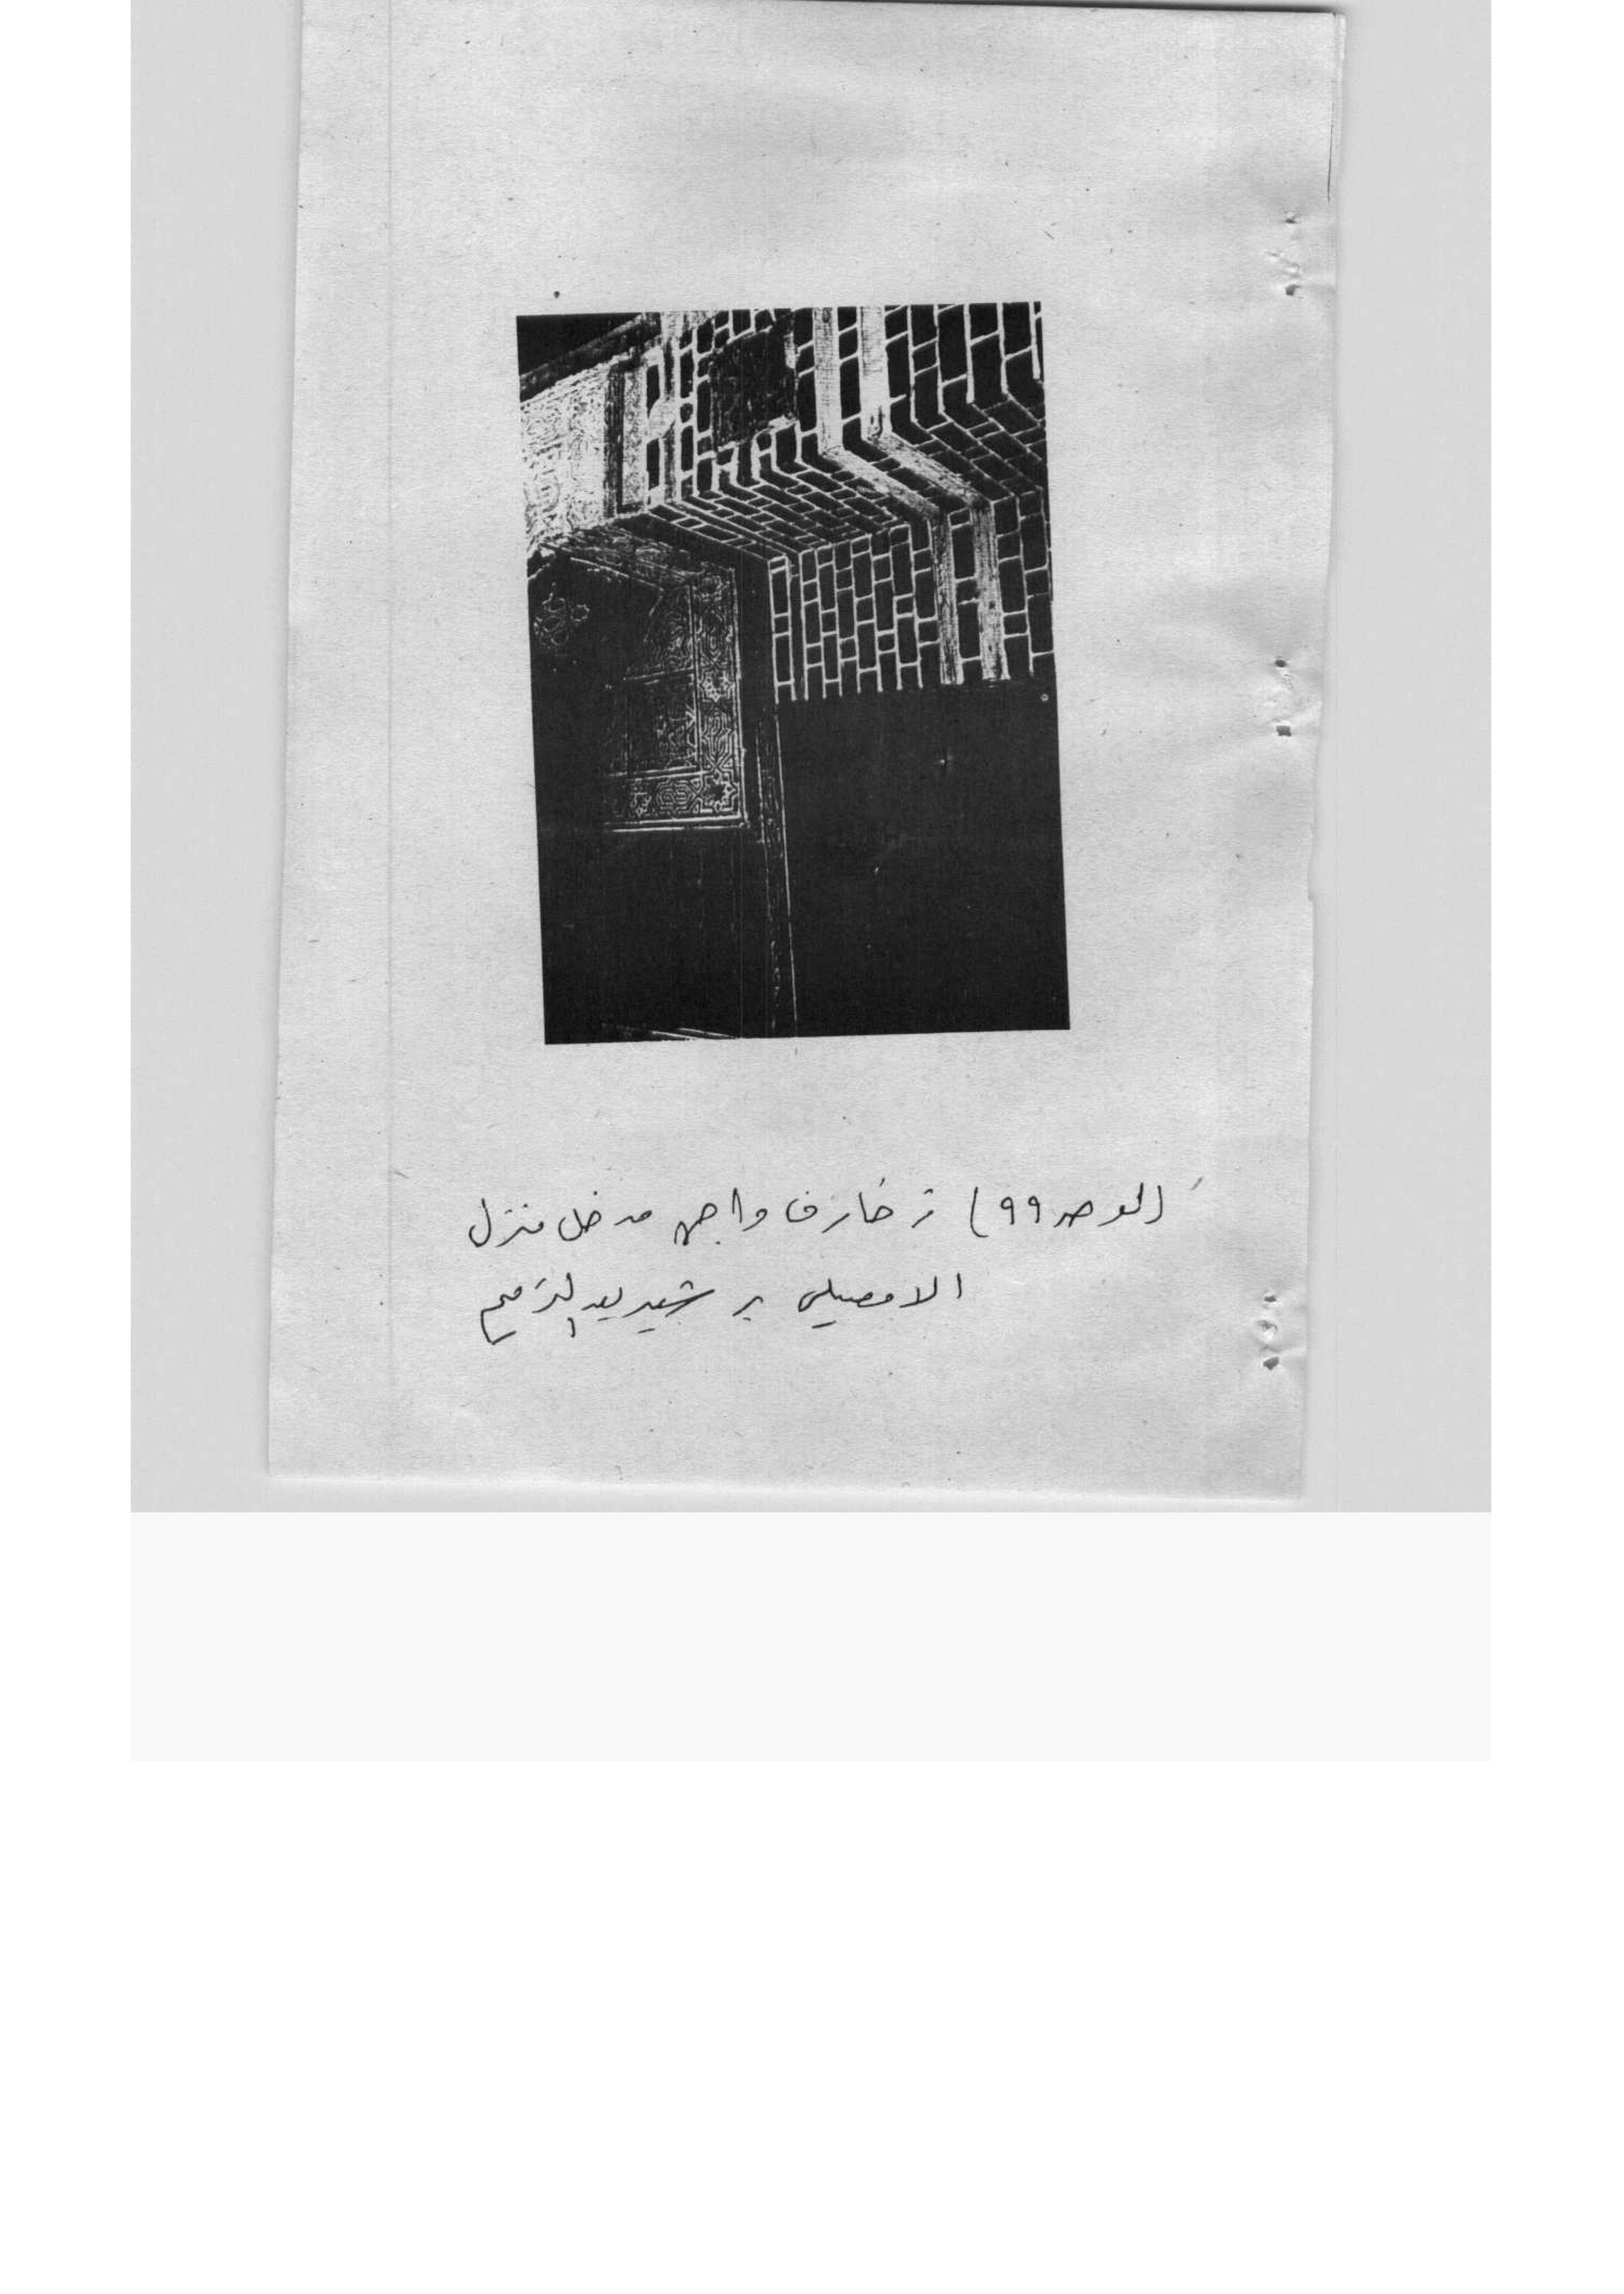 (لوحه ٩٩) زخارف واجهه مدخل منزل
الامصيلى برشيد بعد الترميم